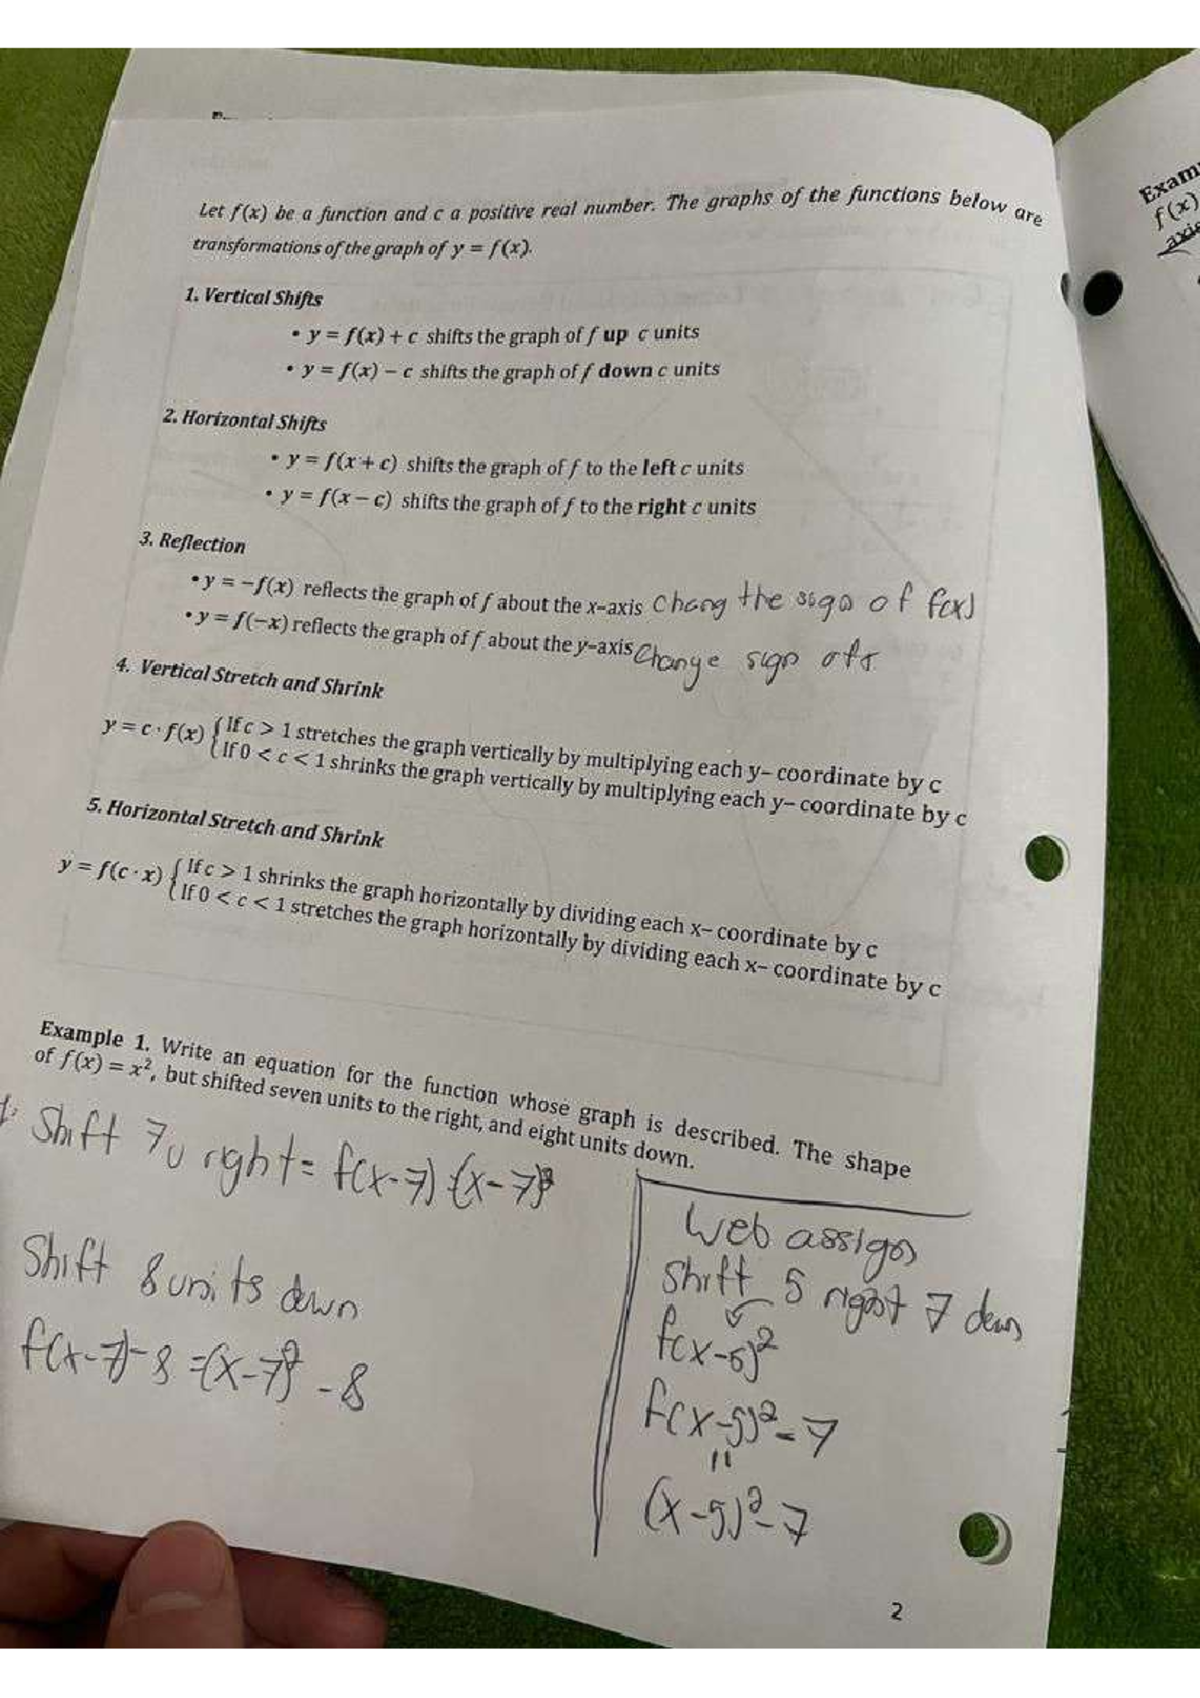 Let f(x) be a function and c a positive real number. The graphs of the functions below are
transformations of the graph of y = f(x).
1. Vertical Shifts
• y = f(x) + c shifts the graph of f up c units
• y = f(x) − c shifts the graph of f down c units
2. Horizontal Shifts
• y = f(x + c) shifts the graph of f to the left c units
• y = f(x − c) shifts the graph of f to the right c units
3. Reflection
• y = −f(x) reflects the graph of f about the x-axis Chang the sign of f(x)
• y = f(−x) reflects the graph of f about the y-axis Change sign of x
4. Vertical Stretch and Shrink
y = c · f(x) { If c > 1 stretches the graph vertically by multiplying each y− coordinate by c
If 0 < c < 1 shrinks the graph vertically by multiplying each y− coordinate by c
5. Horizontal Stretch and Shrink
y = f(c · x) { If c > 1 shrinks the graph horizontally by dividing each x− coordinate by c
If 0 < c < 1 stretches the graph horizontally by dividing each x− coordinate by c
Example 1. Write an equation for the function whose graph is described. The shape
of f(x) = x², but shifted seven units to the right, and eight units down.
Shift 7u right = f(x-7) (x-7)²
Shift 8 units down
f(x-7)-8 = (x-7)² - 8
Web assign
Shift 5 right 7 down
f(x-5)²
f(x-5)² - 7
=
(x-5)² - 7
2
Exam
f(x)
axis